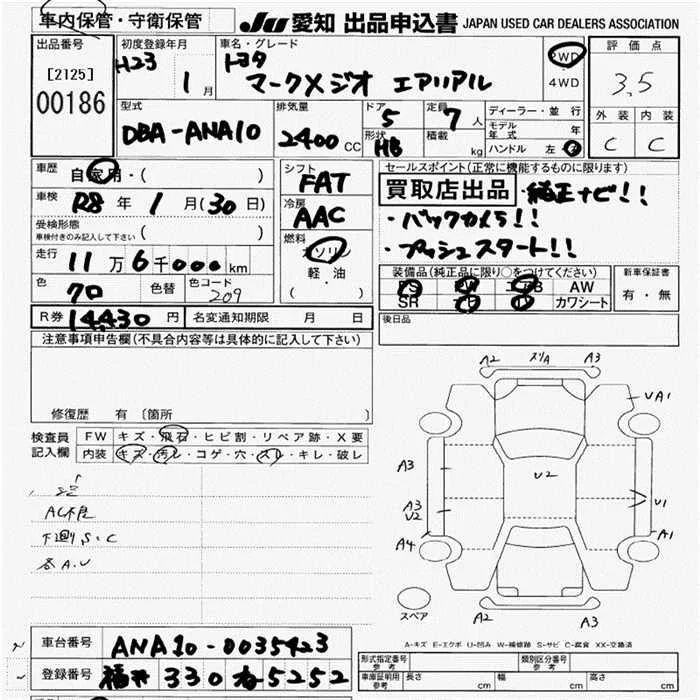 車内保管・守衛保管
JU 愛知 出品申込書 JAPAN USED CAR DEALERS ASSOCIATION
出品番号
[2125]
00186
初度登録年月
H23 1 月
車名・グレード
トヨタ
マークXジオ エアリアル
2WD
4WD
評価点
3.5
外装 内装
C C
型式
DBA-ANA10
排気量
2400 CC
ドア
5
形状
HB
定員
7 人
積載 kg
ディーラー・並行
モデル年式 年
ハンドル 左・
車歴
自家用・( )
車検
R8 年 1 月(30 日)
受検形態
車検付きのみ記入して下さい ( )
走行
11 万 6 千 000 km
色
クロ
色替
色コード
209
シフト
FAT
冷房
AAC
燃料
ガソリン
軽油
( )
セールスポイント(正常に機能するものに限ります)
買取店出品 ・純正ナビ!!
・バックカメラ!!
・プッシュスタート!!
装備品(純正品に限り○をつけてください)
PS PW エアB AW
SR ナビ TV カワシート
新車保証書
有・無
R券 14,430 円
名変通知期限 月 日
後日品
注意事項申告欄(不具合内容等は具体的に記入して下さい)
修復歴 有 〔箇所 〕
検査員
記入欄
FW キズ・飛石・ヒビ割・リペア跡・X要
内装 キズ・汚レ・コゲ・穴・スレ・キレ・破レ
AC不良
下廻りS・C
各A.U
A2 スリA A3
UA1
A3
U2
A3
U2
U1
A4
A1
スペア
A2 A3
A-キズ E-エクボ U-凹み W-補修跡 S-サビ C-腐食 XX-交換済
車台番号 ANA10-0035423
登録番号 福井 330 5252
形式指定番号
参考
類別区分番号
参考
車庫証明用
参考
長さ cm 幅 cm 高さ cm